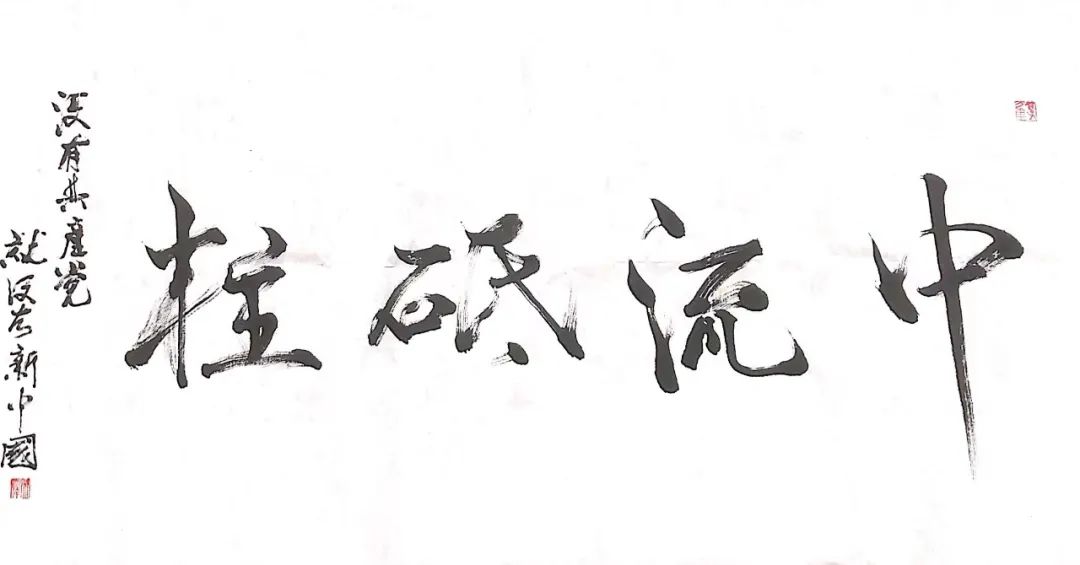 中流砥柱
没有共產党
就没有新中國